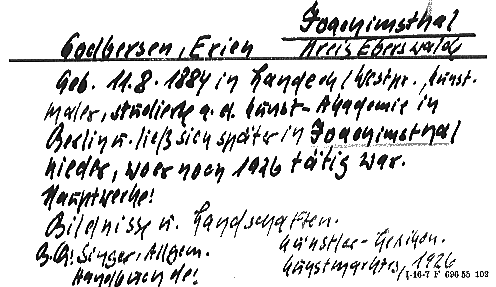 Joachimsthal
Godbersen, Erich Kreis Eberswalde
Geb. 11.8.1884 in Landeck/Westpr., Kunst-
maler, studierte a.d. Kunst-Akademie in
Berlin u. ließ sich später in Joachimsthal
nieder, wo er noch 1926 tätig war.
Hauptwerke:
Bildnisse u. Landschaften.
B.Q: Singer, Allgem. Künstler-Lexikon.
Handbuch de: Kunstmarktes, 1926
I-16-7 F 696 55 102